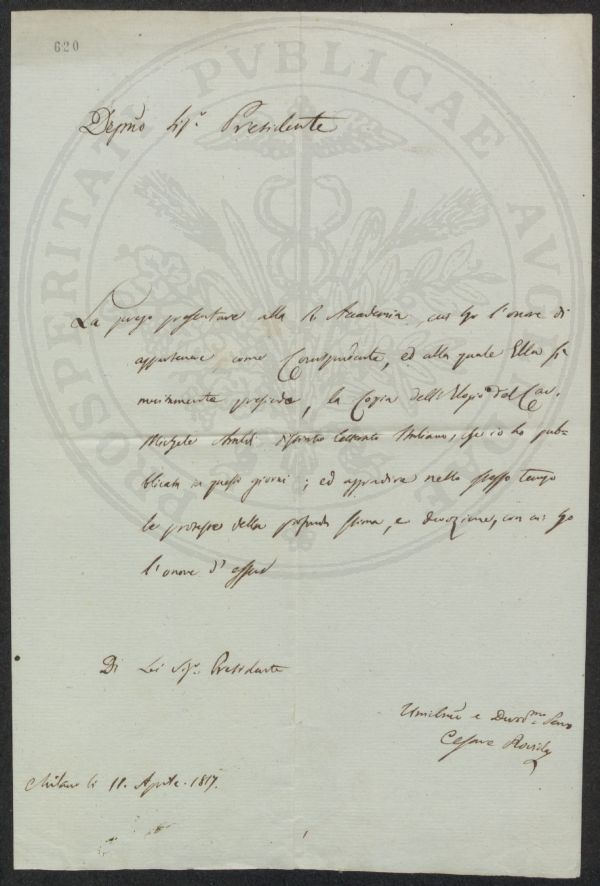 620
PROSPERITATI PVBLICAE AVGENDAE
Depmo Sigr. Presidente
La prego presentare alla R. Accademia, cui ho l'onore di
appartenere come Corrispondente, ed alla quale Ella si
meritamente presiede, la Copia dell'Elogio del Cav.
Michele distinto Letterato Italiano, che io ho pub-
blicata in questi giorni; ed aggradire nello stesso tempo
le proteste della profonda stima, e devozione, con cui ho
l'onore d'essere
Di Lei Sigr. Presidente
Umilmo e Devotmo Servo
Cesare Rovida
Milano li 11. Aprile. 1817.